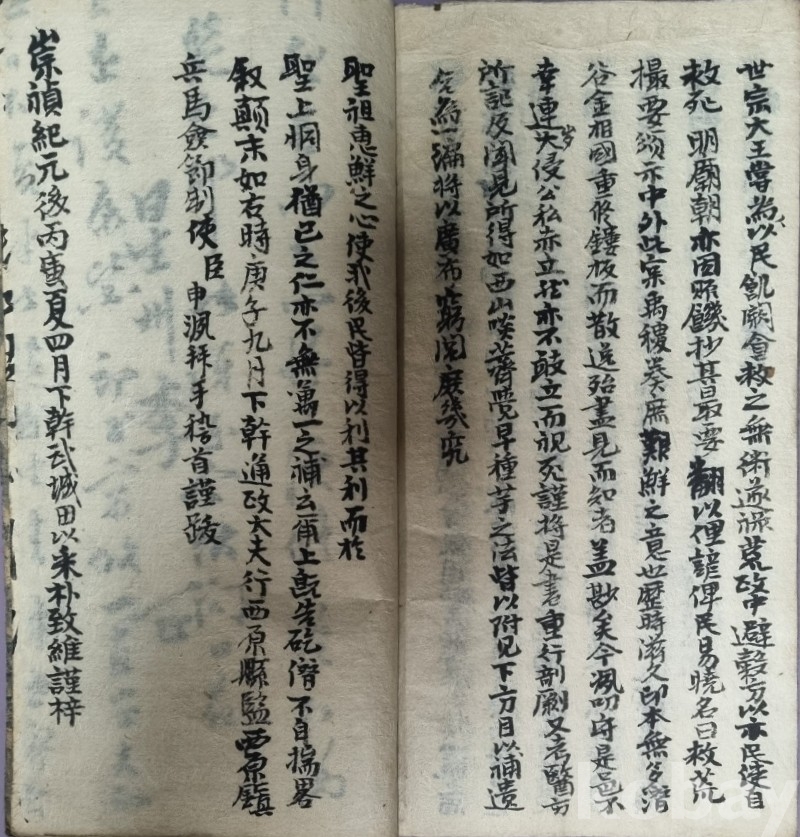 世宗大王嘗為以民飢會救之無術遂荒政中避穀方以示民使自
救死 明廟朝亦因賑饑抄其最要 翻以俚諺俾民易曉名曰救荒
撮要頒示中外此宗禹稷奏庶艱鮮之意也歷時滋久印本無多潛
谷金相國重修鋟板而散逸殆盡見而知者盖尠矣今洬叨守是邑不
幸連歲大侵公私赤立然亦不敢立而視死謹將是書重行剞劂又若醫方
所記及聞見所得如西山啖薺早種芋之法皆以附見下方目以補遺
合為一編將以廣布窮閻庶幾究
聖祖惠鮮之心使我後民皆得以利其利而於
聖上恫身猶己之仁亦不無萬一之補云爾上旣告訖僭不自揣畧
叙顛末如右時庚子九月下幹通政大夫行西原縣監西原鎮
兵馬僉節制使臣 申洬拜手稽首謹跋
崇禎紀元後丙寅夏四月下幹武城田以采朴致維謹梓
kobay